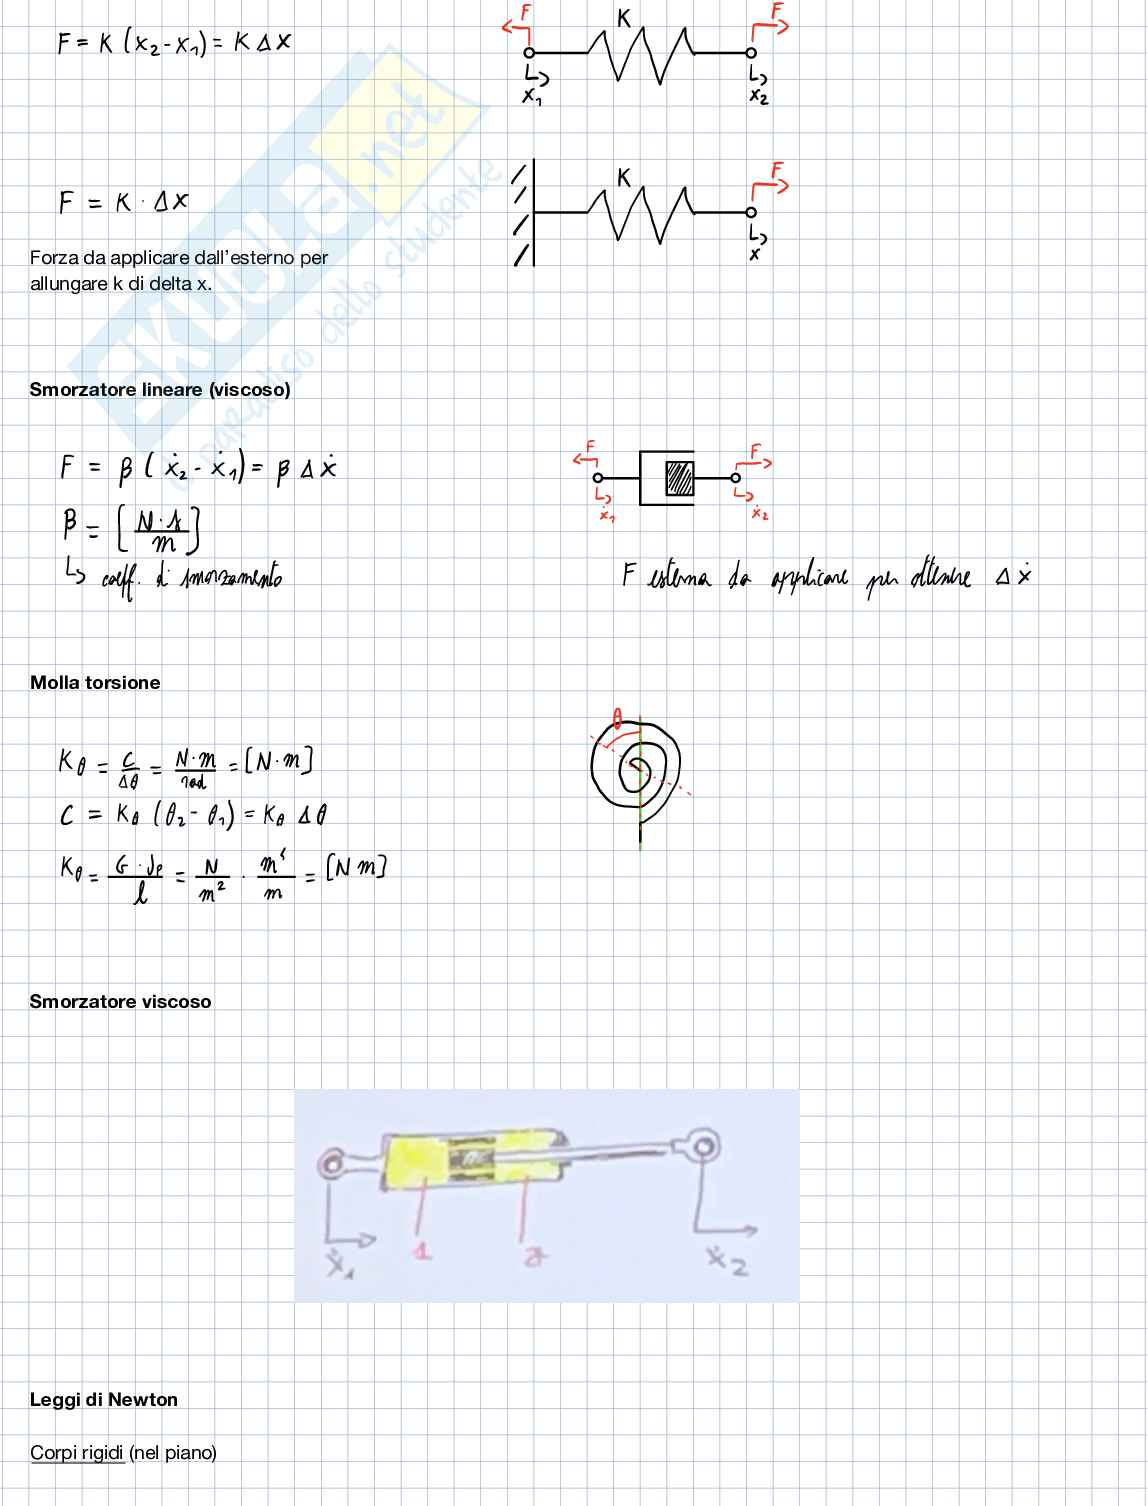 F = K (x₂-x₁) = K Δx
F
F
K
x₁
x₂
F = K · Δx
K
F
x
Forza da applicare dall'esterno per
allungare k di delta x.
SKUOLA.net
il paradiso dello studente
Smorzatore lineare (viscoso)
F = β (ẋ₂ - ẋ₁) = β Δẋ
F
F
ẋ₁
ẋ₂
β = [N·s/m]
↳ coeff. di smorzamento
F esterna da applicare per ottenere Δẋ
Molla torsione
θ
Kθ = C/Δθ = N·m/rad = [N·m]
C = Kθ (θ₂ - θ₁) = Kθ Δθ
Kθ = G·Jp/l = N/m² · m⁴/m = [N m]
Smorzatore viscoso
1
2
ẋ₁
ẋ₂
Leggi di Newton
Corpi rigidi (nel piano)